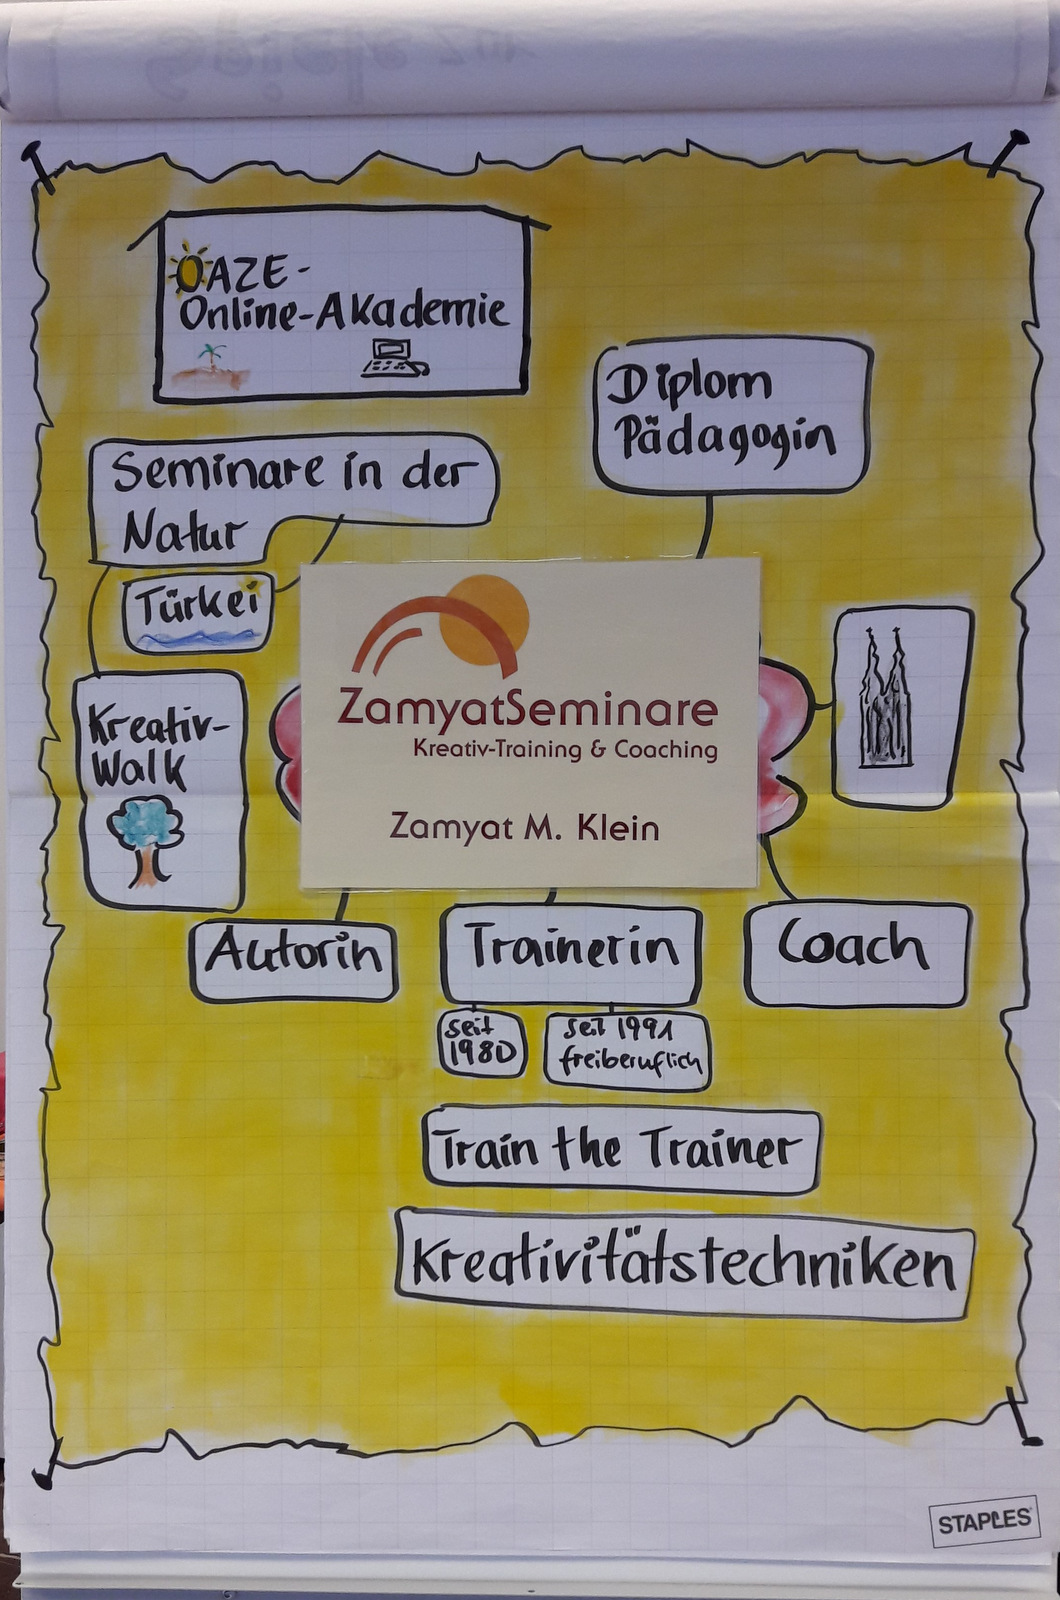 OAZE-
Online-Akademie
Diplom
Pädagogin
Seminare in der
Natur
Türkei
Kreativ-
Walk
ZamyatSeminare
Kreativ-Training & Coaching
Zamyat M. Klein
Autorin
Trainerin
Coach
seit
1980
seit 1991
freiberuflich
Train the Trainer
Kreativitätstechniken
STAPLES